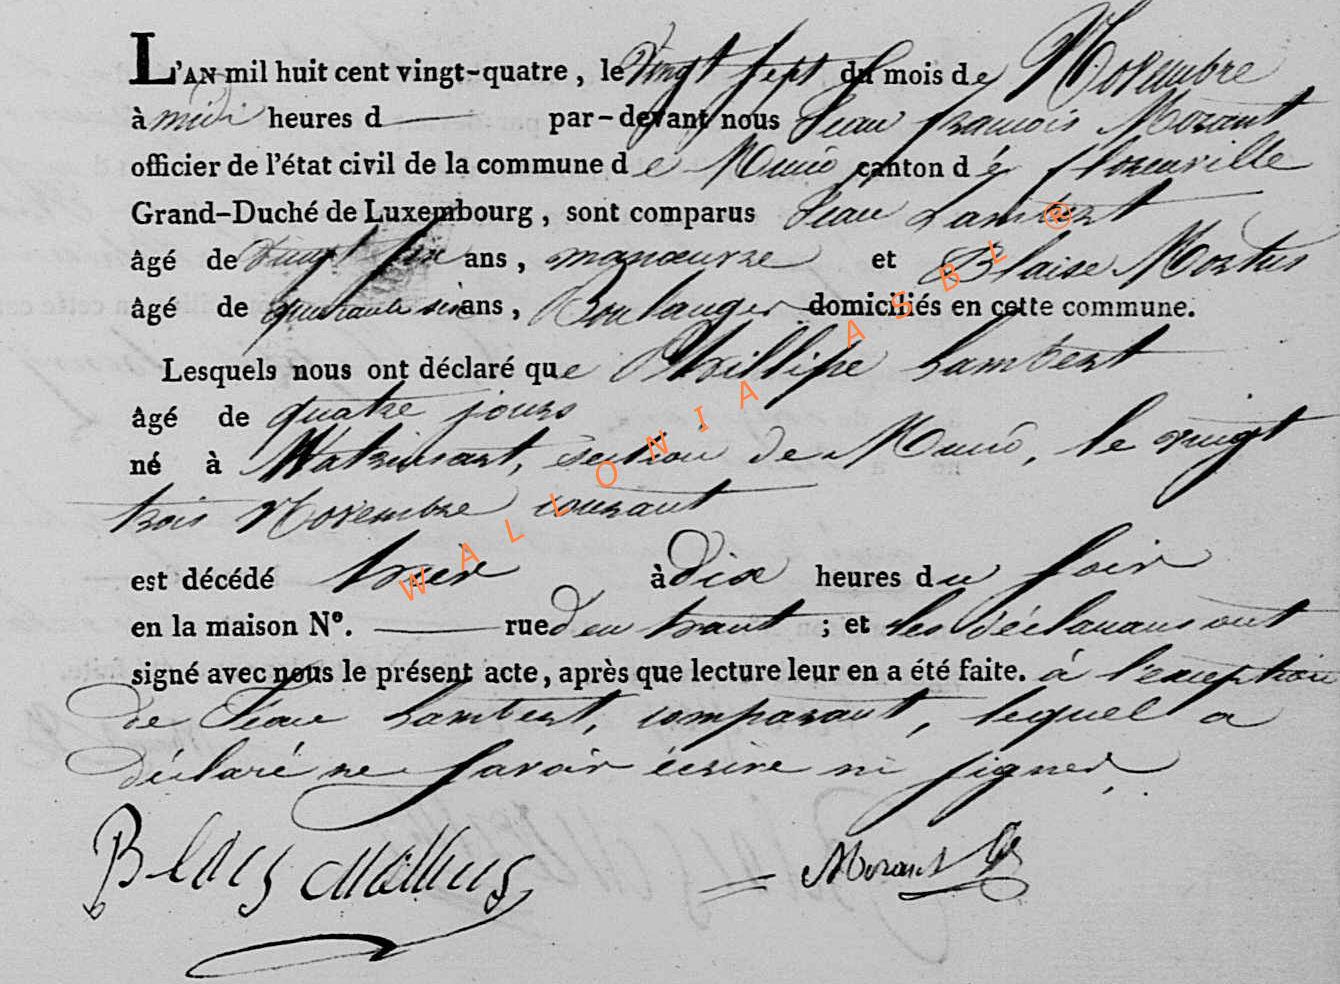 L'AN mil huit cent vingt-quatre, le Vingt sept du mois de Novembre
à midi heures d — par-devant nous Jean François Morant
officier de l'état civil de la commune de Muno canton de florenville
Grand-Duché de Luxembourg, sont comparus Jean Lambert
âgé de ans, manœuvre et Blaise
âgé de quarante six ans, Boulanger domiciliés en cette commune.
Lesquels nous ont déclaré que Phillipe Lambert
âgé de quatre jours
né à Watrinsart, section de Muno, le vingt
trois Novembre courant
est décédé hier à dix heures du soir
en la maison N°. — rue ; et les déclarans ont
signé avec nous le présent acte, après que lecture leur en a été faite. à l'exception
de Jean Lambert, comparant, lequel a
déclaré ne savoir écrire ni signer
Morant
WALLONIA ASBL ®